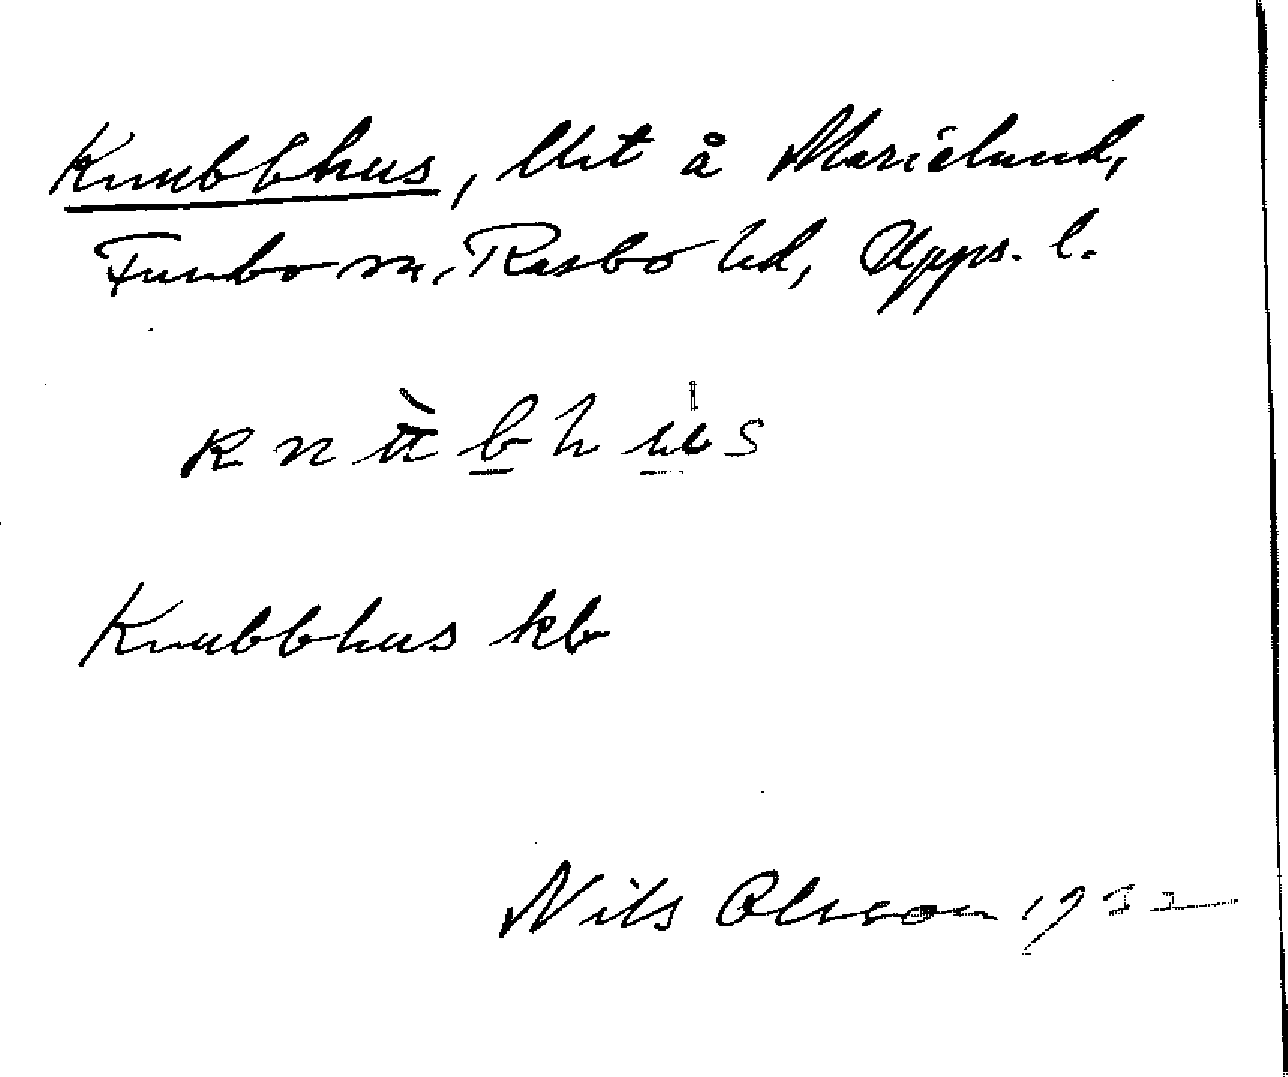 Knubbhus, lht å Marielund,
Funbo sn, Rasbo hd, Upps. l.
Knubbhus kb
Nils Olsson 19